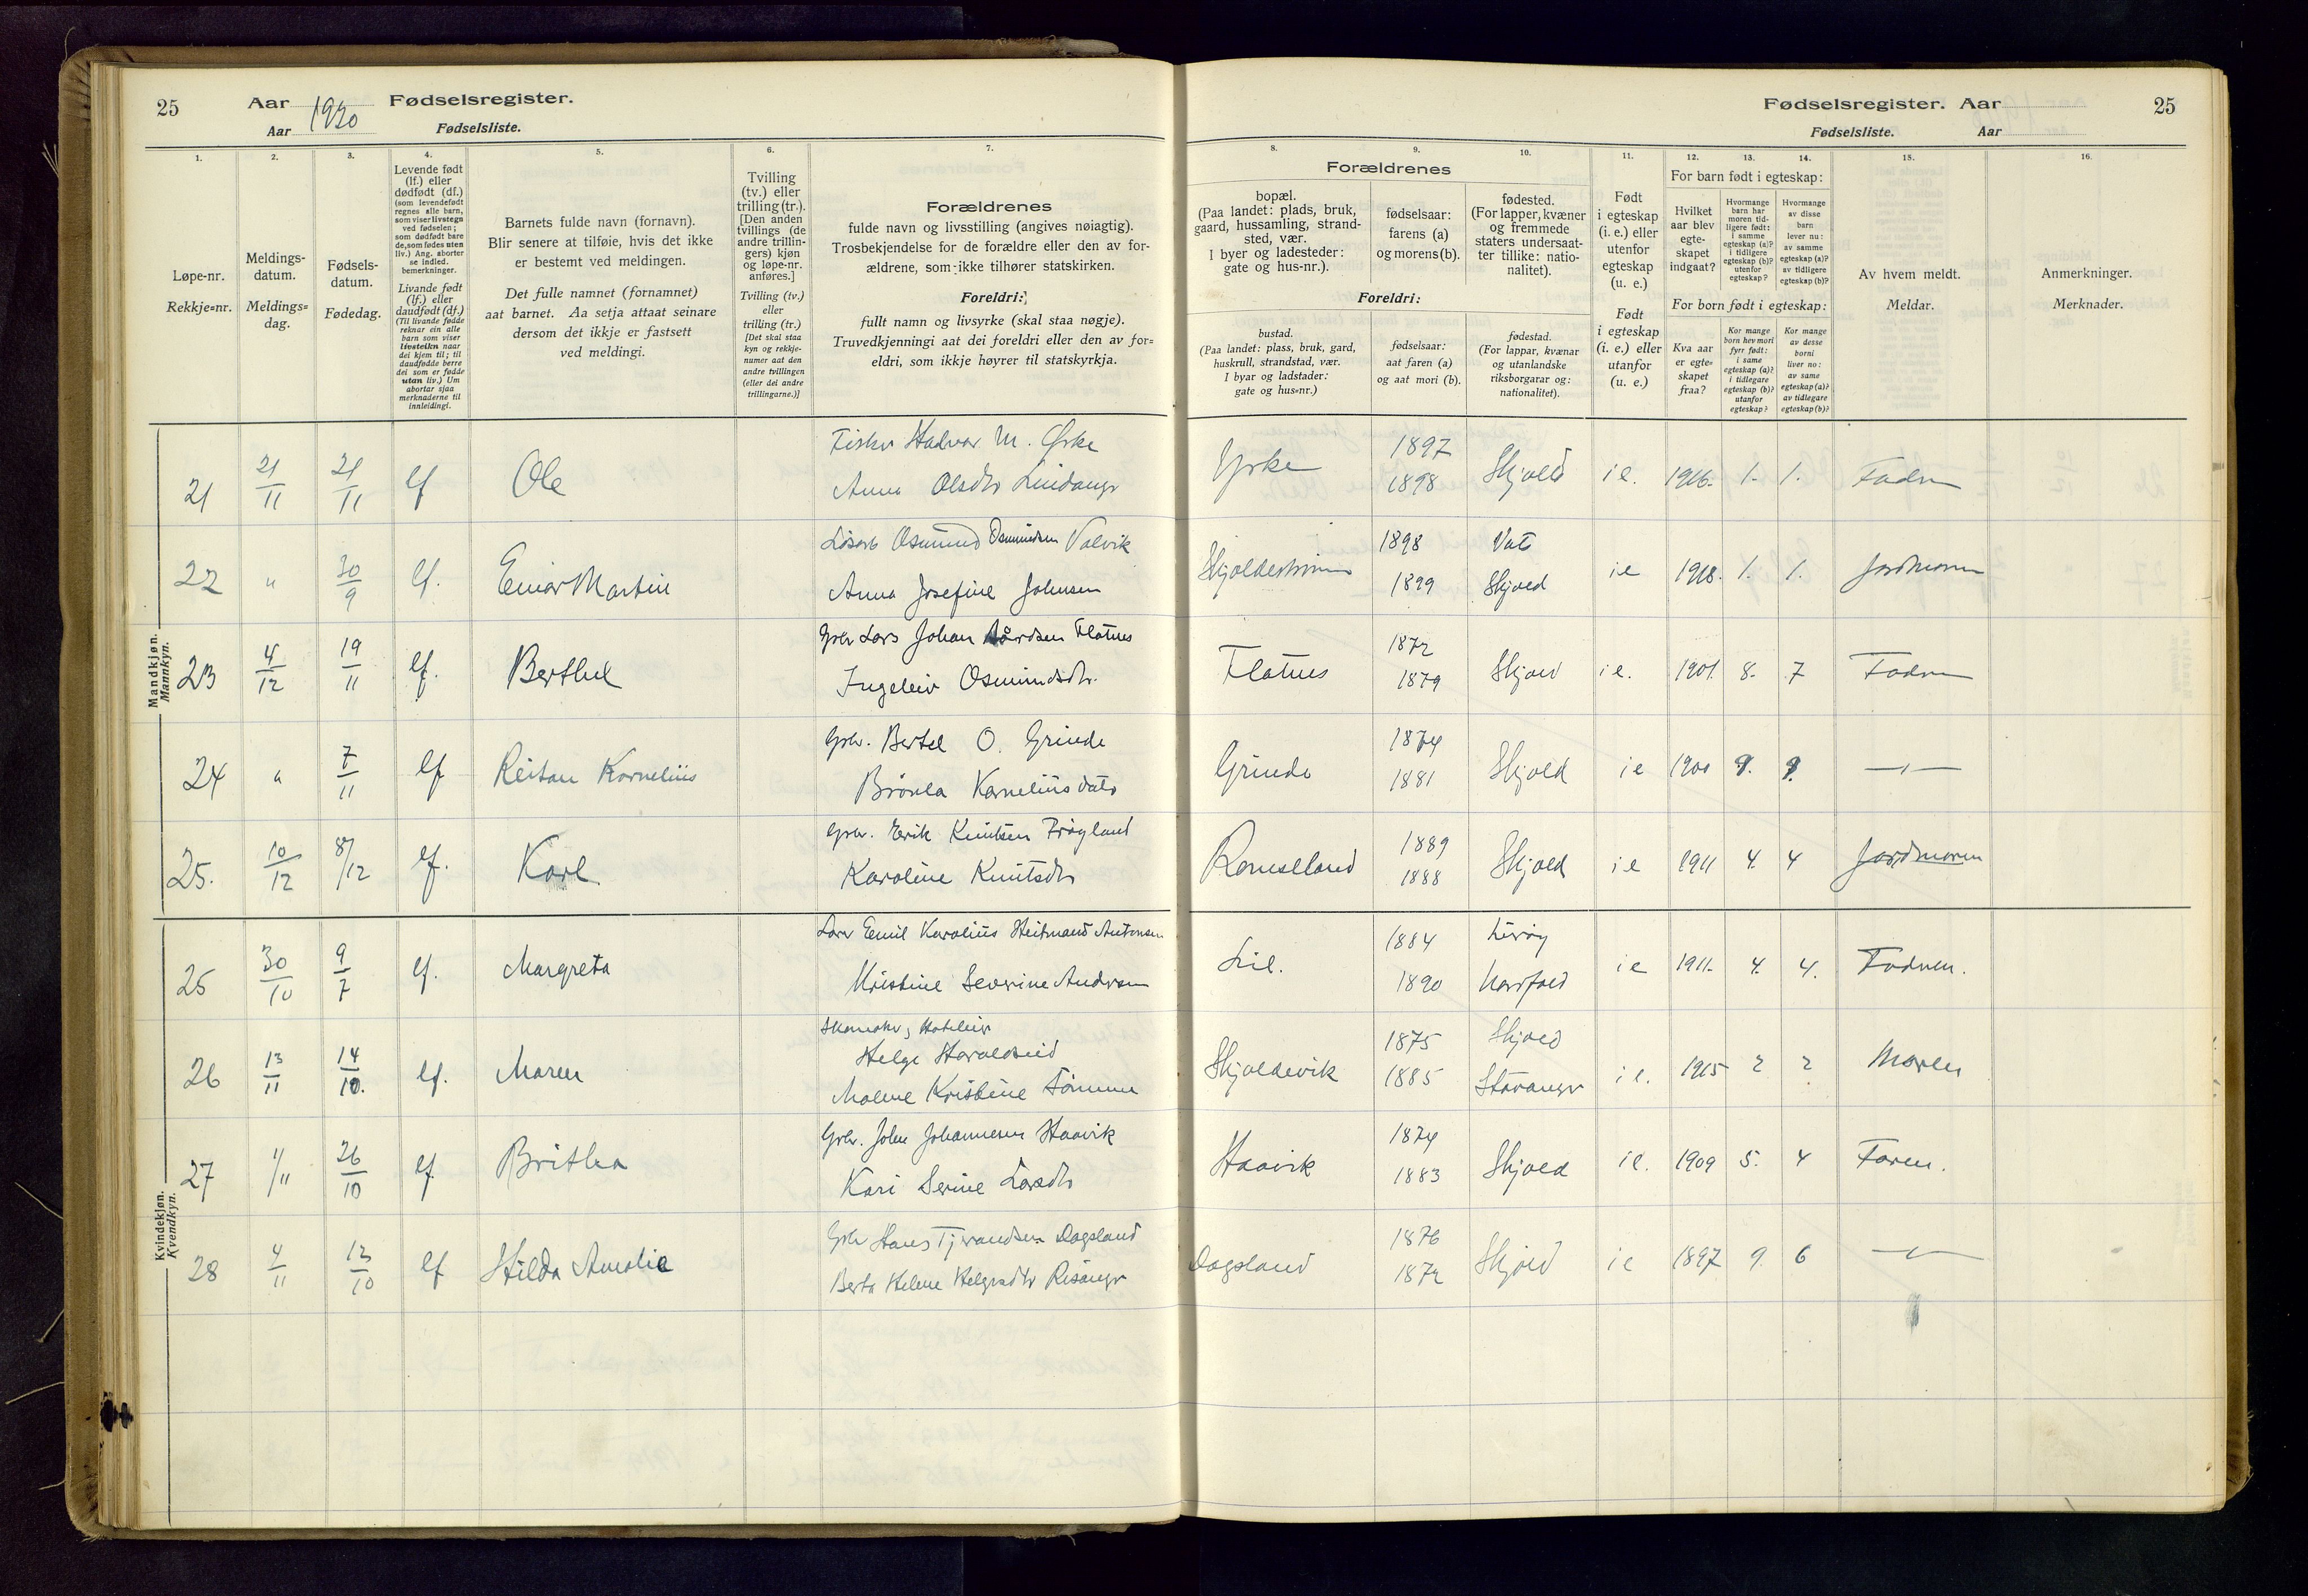 25 Aar 1920 Fødselsregister.
Aar Fødselsliste.
Fødselsregister. Aar 25
Fødselsliste. Aar
1. 2. 3. 4. 5. 6. 7.
8. 9. 10. 11. 12. 13. 14. 15. 16.
Løpe-nr.
Rekkje=nr.
Meldings-
datum.
Meldings=
dag.
Fødsels-
datum.
Fødedag.
Levende født
(lf.) eller
dødfødt (df.)
(som levendefødt
regnes alle barn,
som viser livstegn
ved fødselen;
som dødfødt bare
de, som fødes uten
liv.) Ang. aborter
se indled.
bemerkninger.
Livande født
(lf.) eller
daudfødt (df.)
(Til livande fødde
reknar ein alle
barn som viser
livsteikn naar
dei kjem til; til
daudfødde berre
dei som er fødde
utan liv.) Um
abortar sjaa
merknaderne til
innleidingi.
Barnets fulde navn (fornavn).
Blir senere at tilføie, hvis det ikke
er bestemt ved meldingen.
Det fulle namnet (fornamnet)
aat barnet. Aa setja attaat seinare
dersom det ikkje er fastsett
ved meldingi.
Tvilling
(tv.) eller
trilling (tr.).
[Den anden
tvillings (de
andre trillin-
gers) kjøn
og løpe-nr.
anføres.]
Tvilling (tv.)
eller
trilling (tr.)
[Det skal staa
kyn og rekkje-
numer aat den
andre tvillingen
(eller dei andre
trillingarne.)]
Forældrenes
fulde navn og livsstilling (angives nøiagtig).
Trosbekjendelse for de forældre eller den av for-
ældrene, som ikke tilhører statskirken.
Foreldri:
fullt namn og livsyrke (skal staa nøgje).
Truvedkjenningi aat dei foreldri eller den av for=
eldri, som ikkje høyrer til statskyrkja.
Forældrenes
bopæl.
(Paa landet: plads, bruk,
gaard, hussamling, strand-
sted, vær.
I byer og ladesteder:
gate og hus-nr.).
fødselsaar:
farens (a)
og morens (b).
fødested.
(For lapper, kvæner
og fremmede
staters undersaat-
ter tillike: natio-
nalitet).
Foreldri:
bustad.
(Paa landet: plass, bruk, gard,
huskrull, strandstad, vær.
I byar og ladstader:
gate og hus=nr.)
fødselsaar:
aat faren (a)
og aat mori (b).
fødestad.
(For lappar, kvænar
og utanlandske
riksborgarar og:
nationalitet).
Født
i egteskap
(i. e.) eller
utenfor
egteskap
(u. e.)
Født
i egteskap
(i. e.) eller
utanfor
(u. e.)
For barn født i egteskap:
Hvilket
aar blev
egte-
skapet
indgaat?
Hvormange
barn har
moren tid-
ligere født:
i samme
egteskap (a)?
i tidligere
egteskap (b)?
utenfor
egteskap?
Hvormange
av disse
barn
lever nu:
av samme
egteskap (a)?
av tidligere
egteskap (b)?
For born født i egteskap:
Kva aar
er egte-
skapet
fraa?
Kor mange
born hev mori
fyrr født:
i same
egteskap (a)?
i tidlegare
egteskap (b)?
utanfor
egteskap?
Kor mange
av desse
borni
liver no:
av same
egteskap (a)?
av tidlegare
egteskap (b)?
Av hvem meldt.
Meldar.
Anmerkninger.
Merknader.
Mandkjøn.
Mannkyn.
21 21/11 21/11 lf Ole Fisker Halvor M. Yrke Yrke 1897 Skjold i e. 1916. 1. 1. Fadren
Anna Olsdtr Lindanger 1898
22 " 30/9 lf. Einar Martin Løsarb Osmund Osmundsen Valvik Skjoldestraumen 1898 Vats i e 1918. 1. 1. Jordmoren
Anna Josefine Johnsen 1899 Skjold
23 4/12 19/11 lf. Berthel Gbr Lars Johan Flatnes Flatnes 1872 Skjold i e. 1901. 8. 7 Fadren
Ingeleiv Osmundsdtr. 1879
24 " 7/11 lf Reitan Kornelius Gbr. Bertel O. Grinde Grinde 1874 Skjold i e 1900 9. 9. —"—
Brønla Korneliusdatr 1881
25. 10/12 8/12 lf. Karl Gbr. Erik Knutsen Frøyland Ramsland 1889 Skjold i e 1911 4. 4 Jordmoren
Karoline Knutsdtr 1888
Kvindekjøn.
Kvendkyn.
25 30/10 9/7 lf. Margreta Emil Karolius Heitmand Antonsen Lie. 1884 i e 1911. 4. 4. Fadren.
Kristine Severine Andersen 1890
26 13/11 14/10. lf. Maren Skomaker, Hoteleier Skjoldevik 1875 Skjold i e. 1915 2 2 Moren
Helge Haraldseid
Malene Kristine Tømmer 1885 Stavanger
27 1/11 26/10 lf Britha Gbr. John Johannesen Haavik Haavik 1874 Skjold i e. 1909 5. 4 Faren.
Kari Serine Larsdtr 1883
28 4/11 13/10 lf Hilda Amalie Gbr Hans Tjerandsen Dagsland Dagsland 1876 Skjold i e 1897 9. 6 —"—
Berta Helene Helgesdtr Risanger 1872